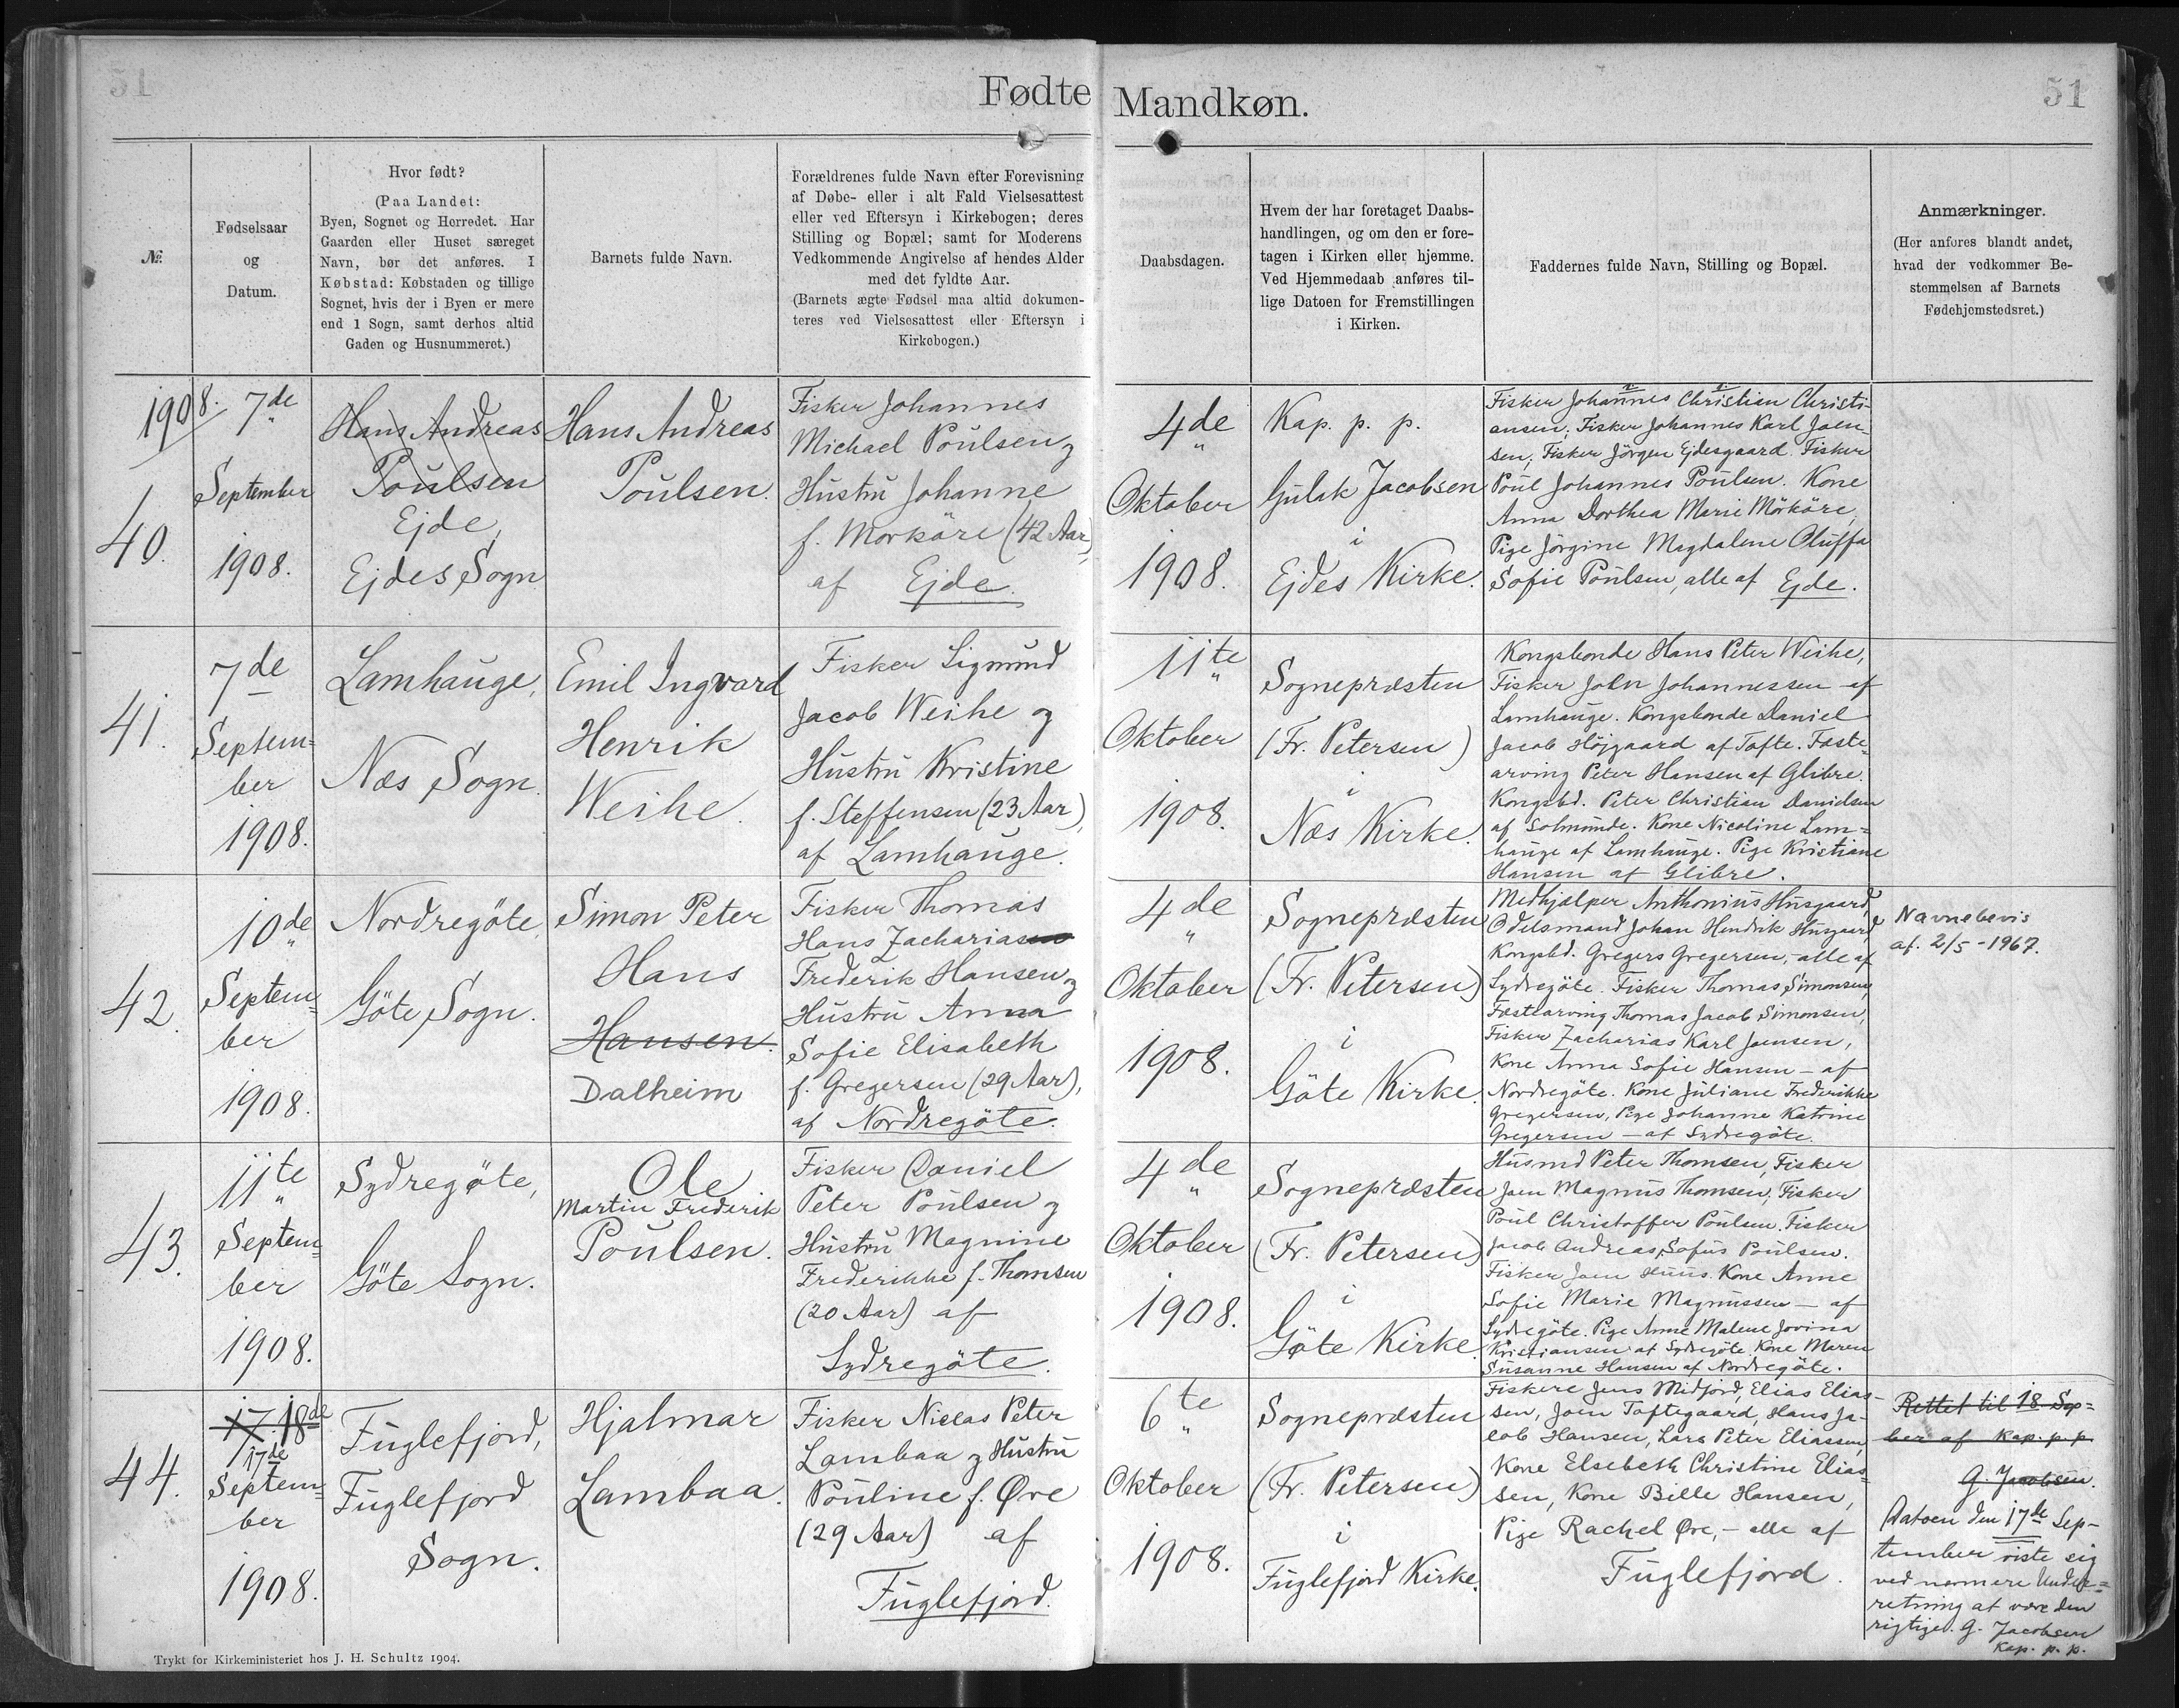 51
Fødte Mandkøn.
51
№
Fødselsaar
og
Datum.
Hvor født?
(Paa Landet:
Byen, Sognet og Herredet. Har
Gaarden eller Huset særeget
Navn, bør det anføres. I
Købstad: Købstaden og tillige
Sognet, hvis der i Byen er mere
end 1 Sogn, samt derhos altid
Gaden og Husnummeret.)
Barnets fulde Navn.
Forældrenes fulde Navn efter Forevisning
af Døbe- eller i alt Fald Vielsesattest
eller ved Eftersyn i Kirkebogen; deres
Stilling og Bopæl; samt for Moderens
Vedkommende Angivelse af hendes Alder
med det fyldte Aar.
(Barnets ægte Fødsel maa altid dokumen-
teres ved Vielsesattest eller Eftersyn i
Kirkebogen.)
Daabsdagen.
Hvem der har foretaget Daabs-
handlingen, og om den er fore-
tagen i Kirken eller hjemme.
Ved Hjemmedaab anføres til-
lige Datoen for Fremstillingen
i Kirken.
Faddernes fulde Navn, Stilling og Bopæl.
Anmærkninger.
(Her anføres blandt andet,
hvad der vedkommer Be-
stemmelsen af Barnets
Fødehjemstedsret.)
1908.
40.
7de
September
1908.
Hans Andreas
Poulsen
Ejde,
Ejdes Sogn
Hans Andreas
Poulsen.
Fisker Johannes
Michael Poulsen og
Hustru Johanne
f. Morköre (42 Aar),
af Ejde.
4de
Oktober
1908.
Kap. p. p.
Gulak Jacobsen
i
Ejdes Kirke.
Fisker Johannes Christian Christi-
ansen, Fisker Johannes Karl Joen-
sen, Fisker Jörgen Ejdesgaard. Fisker
Poul Johannes Poulsen. Kone
Anna Dorthea Marie Mörköre,
Pige Jörgine Magdalene Oluffa
Sofie Poulsen, alle af Ejde.
41.
7de
Septem=
ber
1908.
Lamhauge,
Næs Sogn.
Emil Ingvard
Henrik
Weihe.
Fisker Sigmund
Jacob Weihe og
Hustru Kristine
f. Steffensen (23 Aar),
af Lamhauge.
11te
Oktober
1908.
Sognepræsten
(Fr. Petersen)
i
Næs Kirke.
Kongsbonde Hans Peter Weihe,
Fisker John Johannessen af
Lamhauge. Kongsbonde Daniel
Jacob Höjgaard af Tofte. Fæste-
arving Peter Hansen af Glibre.
Kongsbd. Peter Christian Danielsen
af Solmunde. Kone Nicoline Lam=
hauge af Lamhauge. Pige Kristiane
Hansen af Glibre.
42.
10de
Septem=
ber
1908.
Nordregöte,
Göte Sogn.
Simon Peter
Hans
Hansen.
Dalheim
Fisker Thomas
Hans Zachariasen
Frederik Hansen og
Hustru Anna
Sofie Elisabeth
f. Gregersen (29 Aar),
af Nordregöte.
4de
Oktober
1908.
Sognepræsten
(Fr. Petersen)
i
Göte Kirke.
Medhjælper Anthonius Husgaard,
Odelsmand Johan Hendrik Husgaard,
Kongsbd. Gregers Gregersen, - alle af
Sydregöte. Fisker Thomas Simonsen,
Fæstearving Thomas Jacob Simonsen,
Fisker Zacharias Karl Joensen,
Kone Anna Sofie Hansen - af
Nordregöte. Kone Juliane Frederikke
Gregersen, Pige Johanne Katrine
Gregersen - af Sydregöte.
Navnebevis
af. 2/5-1967.
43.
11te
Septem=
ber
1908.
Sydregöte,
Göte Sogn.
Ole
Martin Frederik
Poulsen.
Fisker Daniel
Peter Poulsen og
Hustru Magnine
Frederikke f. Thomsen
(20 Aar) af
Sydregöte.
4de
Oktober
1908.
Sognepræsten
(Fr. Petersen)
i
Göte Kirke.
Husmd Peter Thomsen, Fisker
Joen Magnus Thomsen, Fisker
Poul Christoffer Poulsen. Fisker
Jacob Andreas Sofus Poulsen.
Fisker Joen Huus. Kone Anne
Sofie Marie Magnussen - af
Sydregöte. Pige Anne Malene Jovina
Kristiansen af Sydregöte. Kone Maren
Susanne Hansen af Nordregöte.
44.
17. 18de
17de
Septem=
ber
1908.
Fuglefjord,
Fuglefjord
Sogn.
Hjalmar
Lambaa.
Fisker Niclas Peter
Lambaa og Hustru
Pouline f. Øre
(29 Aar) af
Fuglefjord.
6te
Oktober
1908.
Sognepræsten
(Fr. Petersen)
i
Fuglefjord Kirke.
Fiskere Jens Midjord, Elias Elias-
sen, Joen Toftegaard, Hans Ja-
cob Hansen, Lars Peter Eliassen,
Kone Elsebeth Christine Elias=
sen, Kone Bille Hansen,
Pige Rachel Øre, - alle af
Fuglefjord.
Rettet til 18 Sep=
ber af Kap. p. p.
G. Jacobsen.
Datoen den 17de Sep-
tember viste sig
ved nærmere Under=
retning at være den
rigtige. G. Jacobsen
Kap. p. p.
Trykt for Kirkeministeriet hos J. H. Schultz 1904.